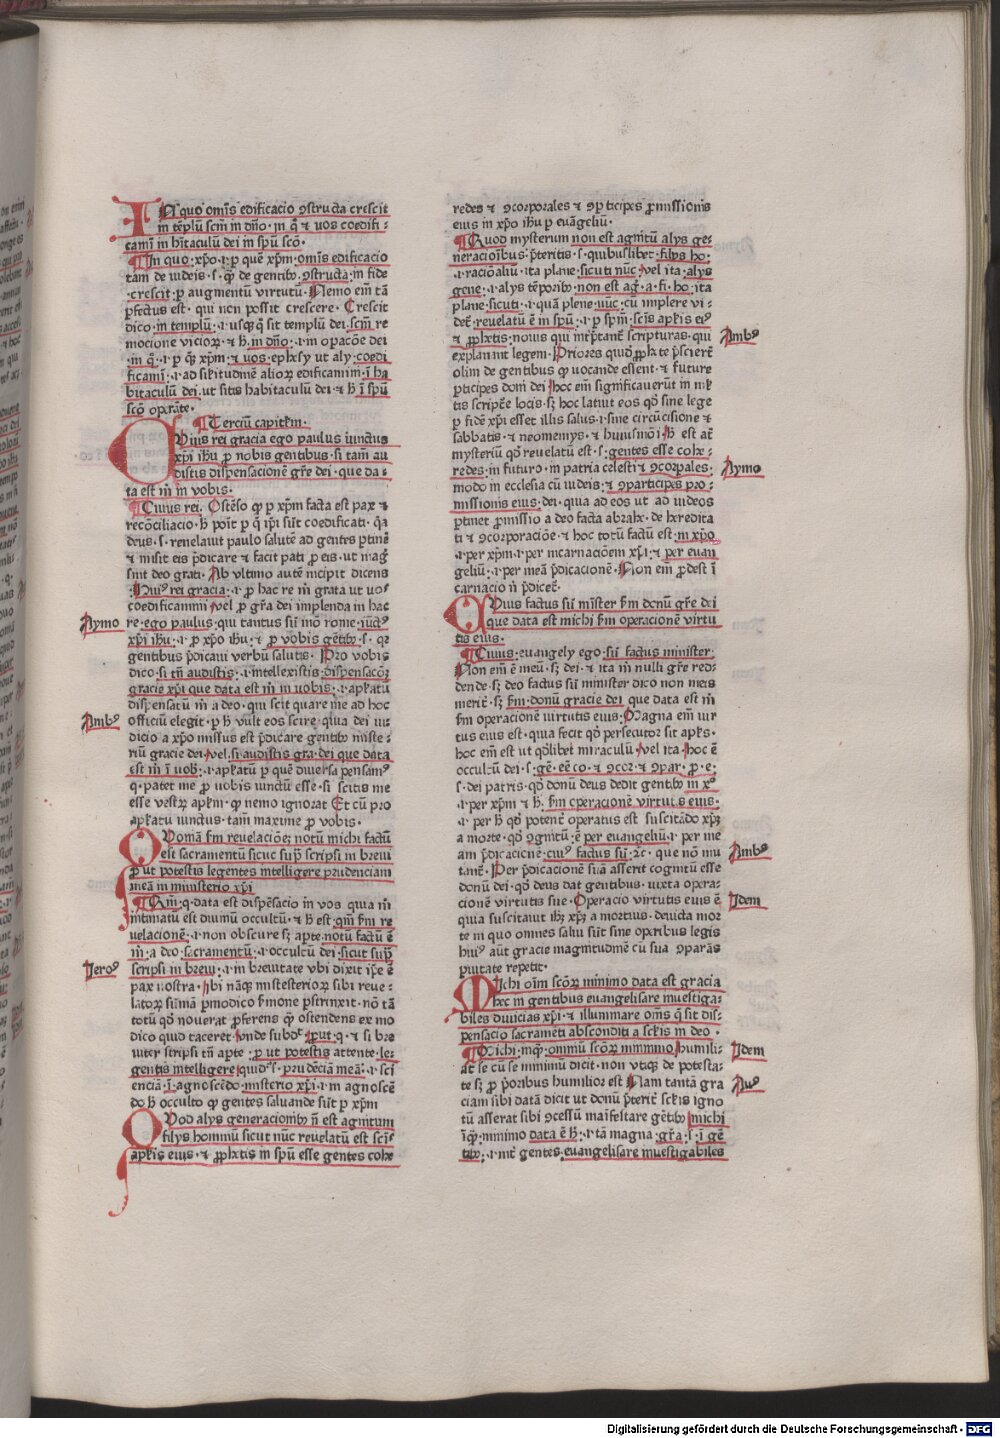 IN quo omīs edificacio ꝯstructa crescit
in tēplū scm̄ in dn̄o· in q̄ ⁊ vos coedifi⸗
camī in hītaculū dei in spū scō·
In quo·xp̄o·ı·p quē xp̄m·omīs edificacio
tam de iudeis·s·q̄ de gentib ꝯstructa·in fide
·crescit·p augmentū virtutū· Nemo em̄ tā
ꝑfectus est· qui non possit crescere· Crescit
dico·in templū·ı·usq sit templū dei·scm̄ re
mocione vicioꝝ ⁊ h̄·in dn̄o·ı·in opacōe dei
·in q̄·ı·p quē xp̄m·⁊ uos·ephesy ut aly·coedi
ficamī·ı·ad silitudinē alioꝝ edificamini·ī ha
bitaculū dei·ut sitis habitaculū dei·⁊ h̄ ī spū
scō operāte·
Terciū capitlm·
Cuius rei gracia ego paulus iunctus
xp̄i ih̄u p nobis gentibus·si tam̄ au⸗
distis dispensacionē gr̄e dei·que da⸗
ta est m̄ in vobis·
Cuius rei· Ostēso q p xp̄m facta est pax ⁊
recōciliacio·h̄ poīt p q ip̄i sūt coedificati· q̄a
deus·s·renelauit paulo salutē ad gentes ptinē
⁊ misit eis p̄dicare ⁊ facit pati p eis·ut mag
sint deo grati· Ab vltimo autē incipit dicens
·Huiꝰ rei gracia·ı·p hac re in grata ut uos
coedificamini vel p gr̄a dei implenda in hac
Aymo
re·ego paulus·qui tantus sū mō rome·iūctꝰ
xp̄i ih̄u·ı·p xp̄o ih̄u·⁊ p vobis gētib·s·q
gentibus p̄dicaui verbū salutis· Pro vobis
dico·si tn̄ audistis·ı·intellexistis·dispensacōꝫ
gracie xp̄i que data est m̄ in uobis·ı·aplatū
dispensatū m̄ a deo·qui scit quare me ad hoc
Ambꝰ
officiū elegit·p h̄ vult eos scire·qua dei iu⸗
dicio a xp̄o missus est p̄dicare gentib miste⸗
riū gracie dei·vel·si audistis gra·dei que data
est m̄ ī uob·ı·aplatū p quē diuersa pensamꝰ
q·patet me p uobis iunctū esse·si scitis me
esse vestꝝ aplm·q nemo ignorat Et cū pro
aplatu iunctus·tam maxime p vobis·
QVomā scdm reuelacōeꝫ notū michi factū
est sacramentū sicuc sup scripsi in breui
p ut potestis legentes intelligere prudenciam
meā in ministerio xp̄i
Qm·q·data est dispēsacio in vos quia m̄
intimatū est diuinū occultū·⁊ h̄ est·qm scdm re
uelacionē·ı·non obscure sꝫ apte·notū factū ē
m̄·a deo·sacramentū·ı·occultū dei·sicut sup
Jeroꝰ
scripsi in breui·ı·in breuitate vbi dixit ip̄e ē
pax nostra· ibi nāq misterioꝝ sibi reue⸗
latoꝝ sūmā p modico sermone p̄strinxit·nō tā
totū qd nouerat pferens q ostendens ex mo
dico quid taceret·unde subdꝰ put·q·⁊ si bre
uiter scripsi tn̄ apte·p ut potestis attente·le⸗
gentis intelligere quidꝰ·prudēciā meā·ı·sci
enciā·ī·agnoscēdo·misterio xp̄i·ı·in agnoscē
do h̄ occulto q gentes saluande sūt p xp̄m
QVod alys generacionib n̄ est agnitum
filys hominū sicut nūc reuelatū est scīs
aplis eius·⁊ pphetis in spū esse gentes cohe
redes ⁊ ꝯcorporales ⁊ ꝯpticipes pmissionis
eius in xp̄o ih̄u p euāgeliū·
Quod mysterium non est agnitū alys ge⸗
neracionibus p̄teritis·s·quibuslibet·filys ho·
·ı·racionaliū·ita plane·sicuti nūc vel ita·alys
gene·ı·alys tēporib·non est ag·a·fi·ho·ita
plane·sicuti·ı·quā plene·nūc·cū implere vi⸗
det·reuelatū ē in spū·ı·p spm̄·scīs aplis eiꝰ
Ambꝰ
⁊ pphetis·nouis qui intp̄tant scripturas·qui
explanant legem· Priores quidē pphete p̄scierēt
olim de gentibus q vocande essent·⁊ future
pticipes domi dei hoc em̄ significauerūt in ml
tis scripte locis·sꝫ hoc latuit eos qd sine lege
p fidē xp̄i esset illis salus·ı·sine circūcisione ⁊
sabbatis·⁊ neomenys·⁊ huiusmōi h̄ est at
mysteriū qd reuelatū est·s·gentes esse cohe⸗
Aymo
redes·in futuro·in patria celesti ⁊ ꝯcorpales·
modo in ecclesia cū iudeis·⁊ ꝯparticipes pro⸗
missionis eius·dei·quia ad eos ut ad iudeos
ptinet pmissio a deo facta abrahe·de heredita
ti ⁊ ꝯcorporacōe·⁊ hoc totū factū est·in xp̄o
·ı·per xp̄m·ı·per incarnacioēm xp̄i·⁊ per euan
geliū·ı·per meā p̄dicacionē· Non em̄ pdest ī
carnacio n̄ p̄dicet·
CVius factus sū mīster scdm donū gr̄e dei
que data est michi scdm operacionē virtu
tis eius·
Cuius·euangely ego·sū factus minister·
Non em̄ ē meū·sꝫ dei·⁊ ita m̄ nulli gr̄e red⸗
dende·sꝫ deo factus sū minister dico non meis
merit·sꝫ scdm·donū gracie dei que data est m̄
scdm operacionē uirtutis eius· Magna em̄ uir
tus eius est·quia fecit qd persecutor sit apls·
hoc em̄ est ut qdlibet miraculū vel ita hoc ē
occultū dei·s·gē·eē co·⁊ ꝯcor·⁊ ꝯpar·p·e·
·s·dei patris·qd donū deus dedit gentib in xꝰ
·ı·per xp̄m ⁊ h̄·scdm operacionē virtutis eius·
·ı·per h̄ qd potent operatus est suscitādo xp̄ꝫ
a morte·qd ꝯgnitū ē per euangeliū·ı·per me
Ambꝰ
am p̄dicacionē·cuiꝰ factus sū·⁊c·que nō mu
tatē· Per p̄dicacionē suā asserit cognitū esse
donū dei·qd deus dat gentibus·iuxta opera⸗
Idem
cionē virtutis sue· Operacio virtutis eius ē
quia suscitauit ih̄ꝫ xp̄ꝫ a mortus·deuicta mor
te in quo omnes salui sūt sine operibus legis
huiꝰ aūt gracie magnitudinē cū sua ꝯparās
priuitate repetit·
MIchi oīm scōꝝ minimo data est gracia
hec in gentibus euangelisare inuestiga⸗
biles diuicias xp̄i·⁊ illuminare omīs q sit dis⸗
pensacio sacrameti absconditi a sclis in deo·
Idem
Michi·inq·omniū scōꝝ minimo humili⸗
at se cū se minimū dicit·non vtiq de potesta⸗
Auꝰ
te sꝫ p prioribus humilioz est Nam tantā gra
ciam sibi datā dicit ut donū p̄terit sclis igno
tū asserat sibi ꝯcessū maīfestare gētib michi
īq·minimo data ē h̄·ı·tā magna·gr̄a·s·ī gē
tib·ı·int gentes·euangelisare inuestigabiles
Digitalisierung gefördert durch die Deutsche Forschungsgemeinschaft · DFG